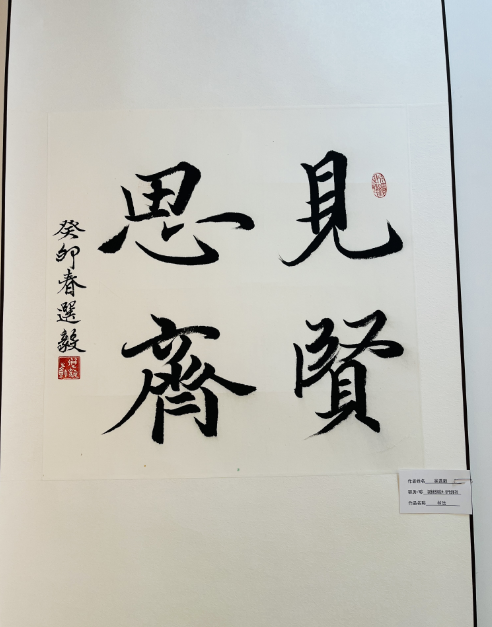 見賢
思齊
癸卯春選毅
作者姓名
作品名称